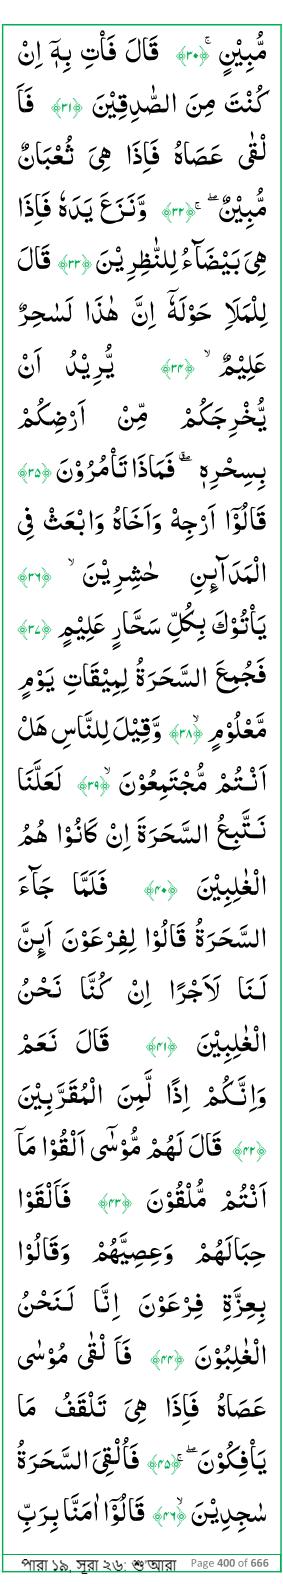 مُّبِيْنٍ ۚ ﴿۳۰﴾ قَالَ فَاْتِ بِهٖۤ اِنْ
كُنْتَ مِنَ الصّٰدِقِيْنَ ﴿۳۱﴾ فَاَ
لْقٰى عَصَاهُ فَاِذَا هِىَ ثُعْبَانٌ
مُّبِيْنٌ ۖ ۚ ﴿۳۲﴾ وَّنَزَعَ يَدَهٗ فَاِذَا
هِىَ بَيْضَآءُ لِلنّٰظِرِيْنَ ﴿۳۳﴾ قَالَ
لِلْمَلَاِ حَوْلَهٗۤ اِنَّ هٰذَا لَسٰحِرٌ
عَلِيْمٌ ۙ ﴿۳۴﴾ يُّرِيْدُ اَنْ
يُّخْرِجَكُمْ مِّنْ اَرْضِكُمْ
بِسِحْرِهٖ ۖ ۗ فَمَاذَا تَاْمُرُوْنَ ﴿۳۵﴾
قَالُوْۤا اَرْجِهْ وَاَخَاهُ وَابْعَثْ فِى
الْمَدَآٮِٕنِ حٰشِرِيْنَ ۙ ﴿۳۶﴾
يَاْتُوْكَ بِكُلِّ سَحَّارٍ عَلِيْمٍ ﴿۳۷﴾
فَجُمِعَ السَّحَرَةُ لِمِيْقَاتِ يَوْمٍ
مَّعْلُوْمٍ ۙ ﴿۳۸﴾ وَّقِيْلَ لِلنَّاسِ هَلْ
اَنْتُمْ مُّجْتَمِعُوْنَ ۙ ﴿۳۹﴾ لَعَلَّنَا
نَتَّبِعُ السَّحَرَةَ اِنْ كَانُوْا هُمُ
الْغٰلِبِيْنَ ﴿۴۰﴾ فَلَمَّا جَآءَ
السَّحَرَةُ قَالُوْا لِفِرْعَوْنَ اَٮِٕنَّ
لَنَا لَاَجْرًا اِنْ كُنَّا نَحْنُ
الْغٰلِبِيْنَ ﴿۴۱﴾ قَالَ نَعَمْ
وَاِنَّكُمْ اِذًا لَّمِنَ الْمُقَرَّبِيْنَ
﴿۴۲﴾ قَالَ لَهُمْ مُّوْسٰٓى اَلْقُوْا مَاۤ
اَنْتُمْ مُّلْقُوْنَ ﴿۴۳﴾ فَاَلْقَوْا
حِبَالَهُمْ وَعِصِيَّهُمْ وَقَالُوْا
بِعِزَّةِ فِرْعَوْنَ اِنَّا لَـنَحْنُ
الْغٰلِبُوْنَ ﴿۴۴﴾ فَاَ لْقٰى مُوْسٰى
عَصَاهُ فَاِذَا هِىَ تَلْقَفُ مَا
يَاْفِكُوْنَ ۖ ۚ ﴿۴۵﴾ فَاُلْقِىَ السَّحَرَةُ
سٰجِدِيْنَ ۙ ﴿۴۶﴾ قَالُوْۤا اٰمَنَّا بِرَبِّ
পারা ১৯, সূরা ২৬: শু'আরা Page 400 of 666